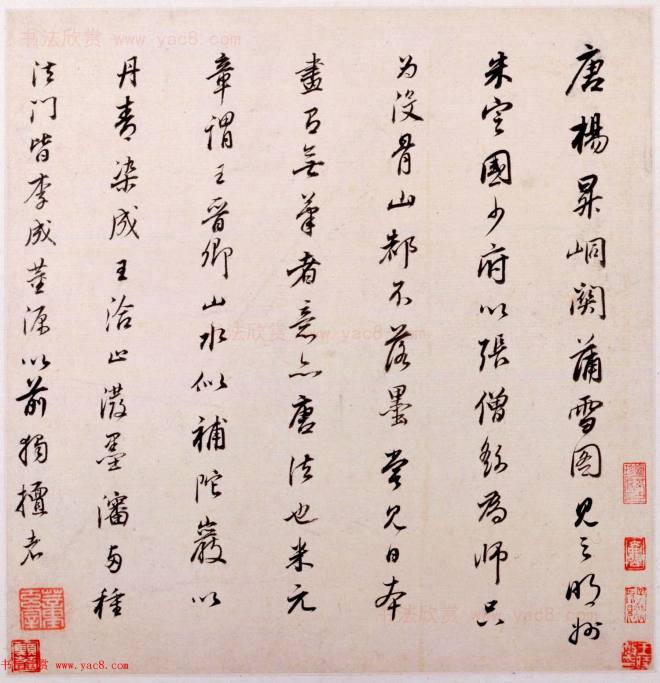 书法欣赏 www.yac8.com
唐楊昇峒關蒲雪图見之明州
朱定國少府以張僧繇為師只
为沒骨山都不落墨嘗見日本
畫有無筆者意亦唐法也米元
章謂王晋卿山水似補陀巖以
丹青染成王洽止潑墨瀋两種
法门皆李成董源以前獨擅者
书法欣赏 www.yac8.com
书法欣赏 www.yac8.com
书法欣赏 www.yac8.com